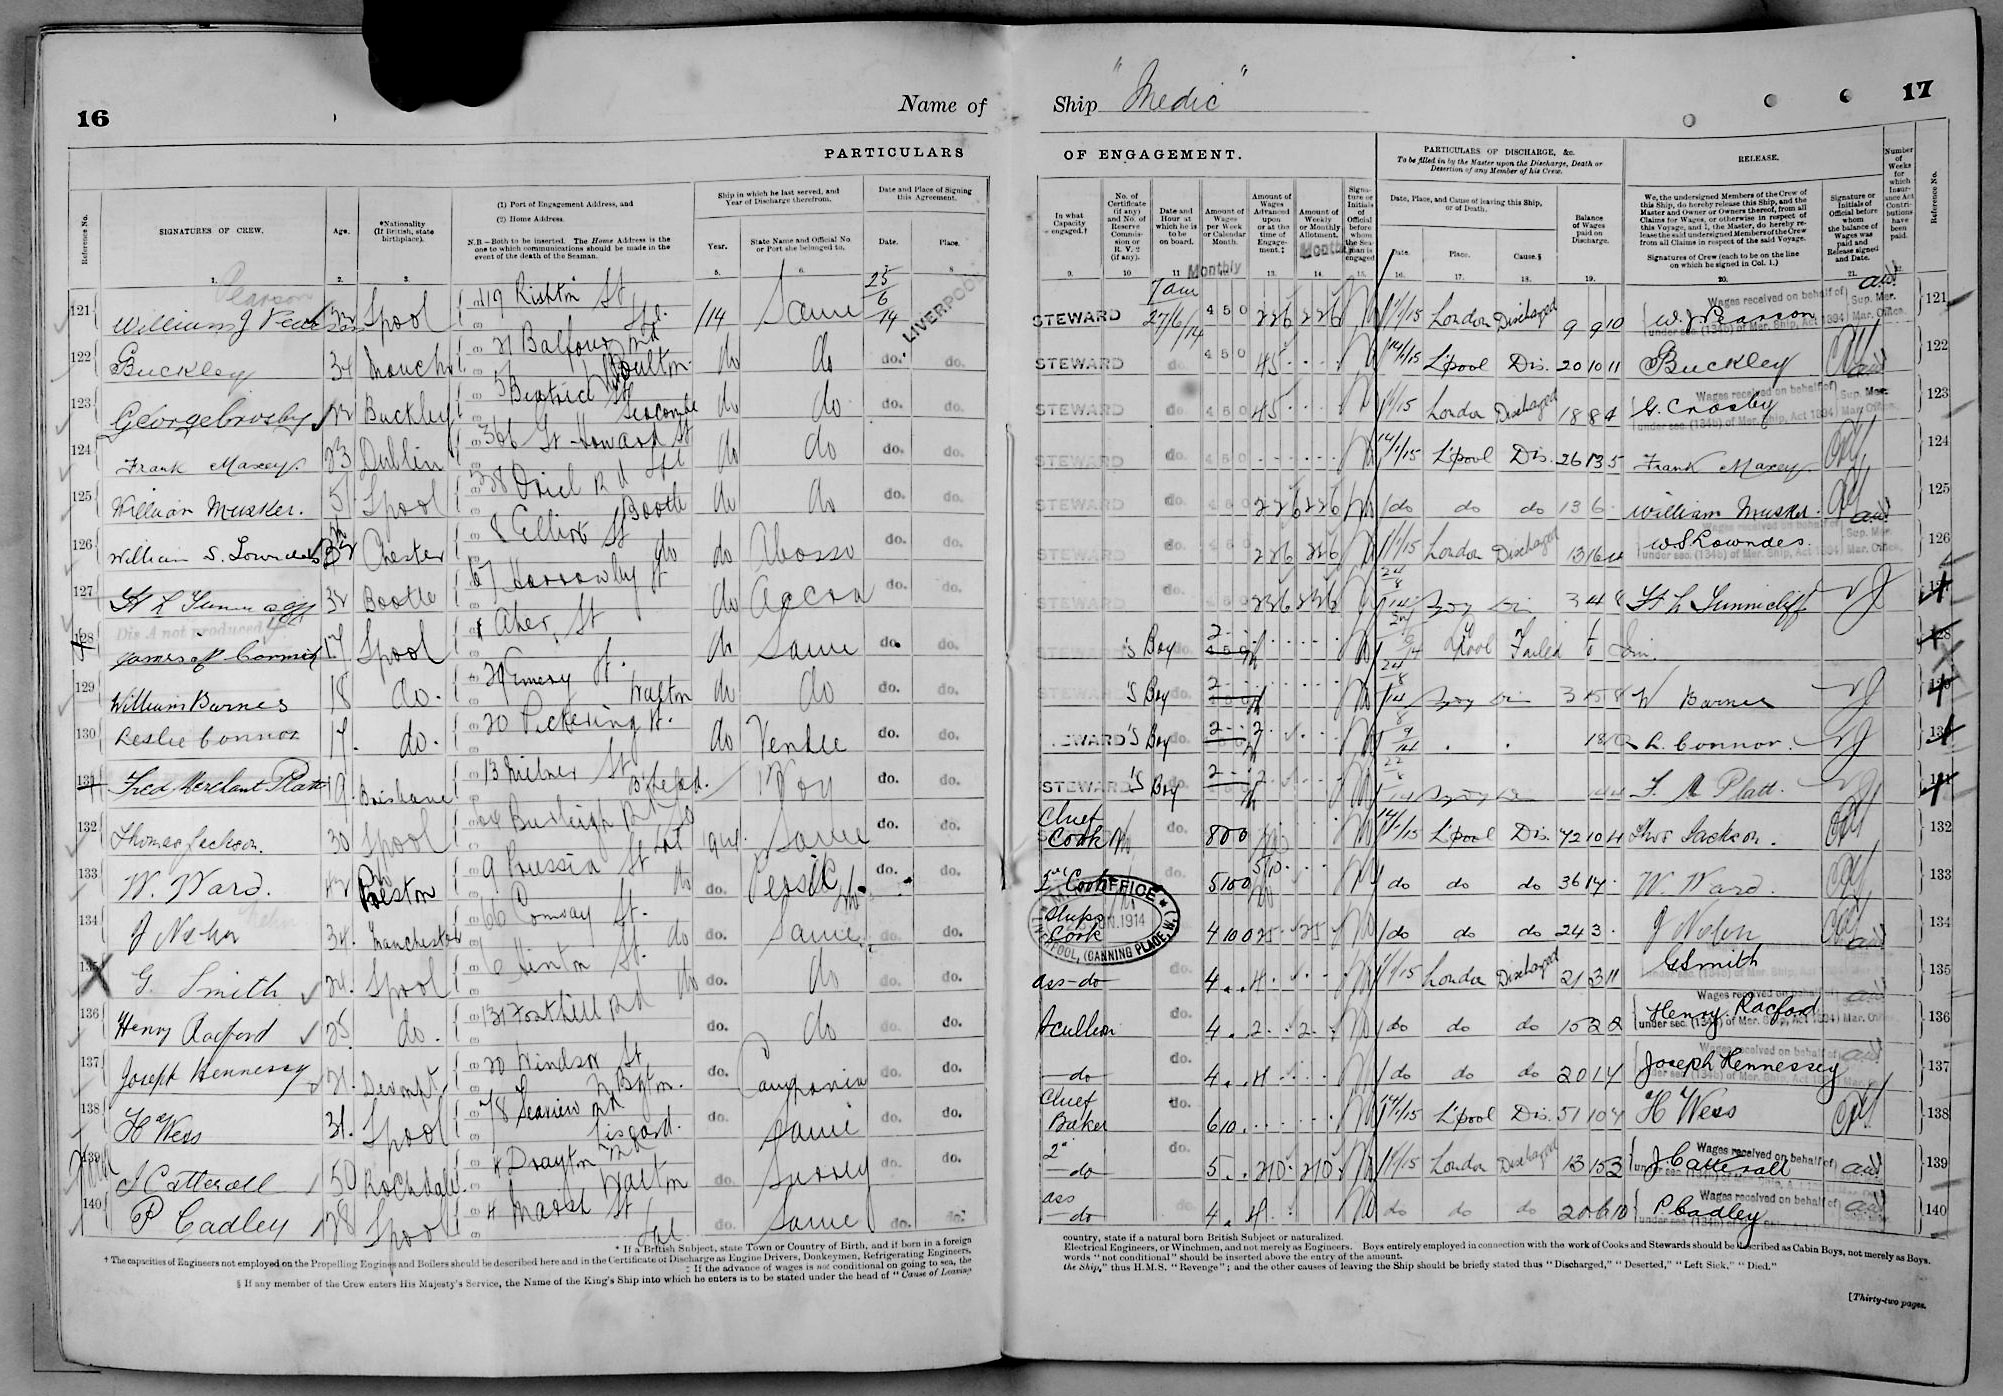 16
Name of
PARTICULARS
Reference No.
SIGNATURES OF CREW.
Age.
*Nationality
(If British, state
birthplace).
(1) Port of Engagement Address, and
(2) Home Address.
N.B—Both to be inserted. The Home Address is the
one to which communications should be made in the
event of the death of the Seaman.
Ship in which he last served, and
Year of Discharge therefrom.
Year.
State Name and Official No.
or Port she belonged to.
Date and Place of Signing
this Agreement.
Date.
Place.
1. 2. 3. 4 5. 6. 7 8
Pearson
121 William J Pearson Lpool 119 Rishton St Lpl. /14 Same 25/6/14 LIVERPOOL
122 Buckley 34 Manch 21 Balfour Rd Poulton do do do. do.
123 George Crosby Buckley 5 Beatrice St Seacombe do do do. do.
124 Frank Maxey. 23 Dublin 366 Gt Howard St Lpl do do do. do.
125 William Musker. 51 Lpool 328 Oriel Rd Bootle do do do. do.
126 William S. Lowndes Chester 8 Elliot St do do Abosso do. do.
127 H L Sunnicliff 32 Bootle Harrowby St do Accra do. do.
Dis A not produced
128 17 Lpool Aber St do Same do. do.
129 William Barnes 18 do. 29 Emery St. Walton do do do. do.
130 Leslie Connor 17. do. 20 Pickering St. do Vendee do. do.
131 Fred Merchant Platt 19. Brisbane 13 Milner St B'head. do. do.
132 Thomas Jackson. 30 Lpool Burleigh Rd So Lpl 1914 Same do. do.
133 W. Ward. 42 Preston 9 Russia St do do. Persic do. do.
134 J Nolan 34. Manchester 66 Conway St. do do. Same do. do.
135 G. Smith 24. Lpool 6 Linton St. do do. do do. do.
136 Henry Racford 25 do. 131 Fonthill Rd do. do do. do.
137 Joseph Hennessy 21. Devonpt 20 Windsor St N Bgtn. do. do. do.
138 H Wess 31. Lpool 78 Seaview Rd Liscard. do. Same do. do.
139 J Catterall 50 Rochdale. 4 Drayton Rd Walton do. Surrey do. do.
140 P Cadley 28 Lpool 4 Marsh St Lpl do. Same do. do.
* If a British Subject, state Town or Country of Birth, and if born in a foreign
† The capacities of Engineers not employed on the Propelling Engines and Boilers should be described here and in the Certificate of Discharge as Engine Drivers, Donkeymen, Refrigerating Engineers,
‡ If the advance of wages is not conditional on going to sea, the
§ If any member of the Crew enters His Majesty's Service, the Name of the King's Ship into which he enters is to be stated under the head of "Cause of Leaving
Ship "Medic"
17
OF ENGAGEMENT.
PARTICULARS OF DISCHARGE, &c.
To be filled in by the Master upon the Discharge, Death or
Desertion of any Member of his Crew.
RELEASE.
Number
of
Weeks
for
which
Insur-
ance Act
Contri-
butions
have
been
paid.
Reference No.
In what
Capacity
engaged.†
No. of
Certificate
(if any)
and No. of
Reserve
Commis-
sion or
R. V. 2
(if any).
Date and
Hour at
which he is
to be
on board.
Amount of
Wages
per Week
or Calendar
Month.
Amount of
Wages
Advanced
upon
or at the
time of
Engage-
ment.‡
Amount of
Weekly
or Monthly
Allotment.
Signa-
ture or
Initials
of
Official
before
whom
the Sea-
man is
engaged
Date, Place, and Cause of leaving this Ship,
or of Death.
Date.
Place.
Cause.§
Balance
of Wages
paid on
Discharge.
We, the undersigned Members of the Crew of
this Ship, do hereby release this Ship, and the
Master and Owner or Owners thereof, from all
Claims for Wages, or otherwise in respect of
this Voyage, and I, the Master, do hereby re-
lease the said undersigned Members of the Crew
from all Claims in respect of the said Voyage.
Signatures of Crew (each to be on the line
on which he signed in Col. 1.)
Signature or
Initials of
Official before
whom
the balance of
Wages was
paid and
Release signed
and Date.
9. 10 11 Monthly 13. 14. 15. 16. 17. 18. 19. 20. 21.
STEWARD 7 am 27/6/14 4 5 0 2 2 6 2 2 6 11/1/15 London Discharged 9 9 10 W. J Pearson 121
STEWARD do. 4 5 0 4 5 14/1/15 L'pool Dis. 20 10 11 Buckley 122
STEWARD do. 4 5 0 4 5 11/1/15 London Discharged 18 8 4 G. Crosby 123
STEWARD do. 4 5 0 14/1/15 L'pool Dis. 26 13 5 Frank Maxey. 124
STEWARD do. 2 2 6 2 2 6 do do do 13 6 William Musker. 125
STEWARD do. 2 2 6 2 2 6 11/1/15 London Discharged 13 16 4 W S Lowndes. 126
STEWARD do. 2 2 6 2 2 6 24/8/14 3 4 8 H L Sunnicliff
'S Boy do. 2 Lpool Failed to Join.
'S Boy do. 2 24/8/14 3 15 8 W Barnes
STEWARD'S Boy do. 2 2 8/9/14 L. Connor.
STEWARD'S Boy do. 2 2 22/8/14 F. M Platt.
Chief Cook do. 8 0 0 14/1/15 L'pool Dis. 72 10 4 Thos Jackson. 132
2nd Cook 5 10 0 5 10 do do do 36 14 W. Ward. 133
Ships Cook 4 10 0 2 5 2 5 do do do 24 3 J Nolan 134
OFFICE JUN. 1914 LIVERPOOL, (CANNING PLACE, W.)
ass-do do. 4 . . 4 11/1/15 London Discharged 21 3 11 G Smith 135
Scullion do. 4 . 2 2 do do do 15 2 2 Henry Racford 136
do do. 4 . 4 do do do 20 1 4 Joseph Hennessey 137
Chief Baker do. 6 10 . 14/1/15 L'pool Dis. 51 10 4 H Wess 138
2nd do do. 5 . . 2 10 2 10 11/1/15 London Discharged 13 15 3 J Catterall 139
ass do do. 4 . 4 do do do 20 6 10 P Cadley 140
Wages received on behalf of
under sec. (134b) of Mer. Ship. Act 1894
Sup. Mer.
Mar. Office.
country, state if a natural born British Subject or naturalized.
Electrical Engineers, or Winchmen, and not merely as Engineers. Boys entirely employed in connection with the work of Cooks and Stewards should be described as Cabin Boys, not merely as Boys.
words "not conditional" should be inserted above the entry of the amount.
the Ship," thus H.M.S. "Revenge"; and the other causes of leaving the Ship should be briefly stated thus "Discharged," "Deserted," "Left Sick," "Died."
[Thirty-two pages.